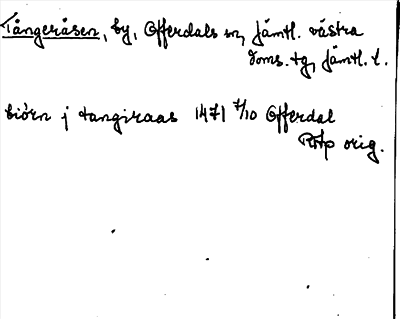 Tångeråsen, by, Offerdals sn, Jämtl. västra
doms.tg, Jämtl. l.
biörn j tangiraas 1471 7/10 Offerdal
RAp orig.